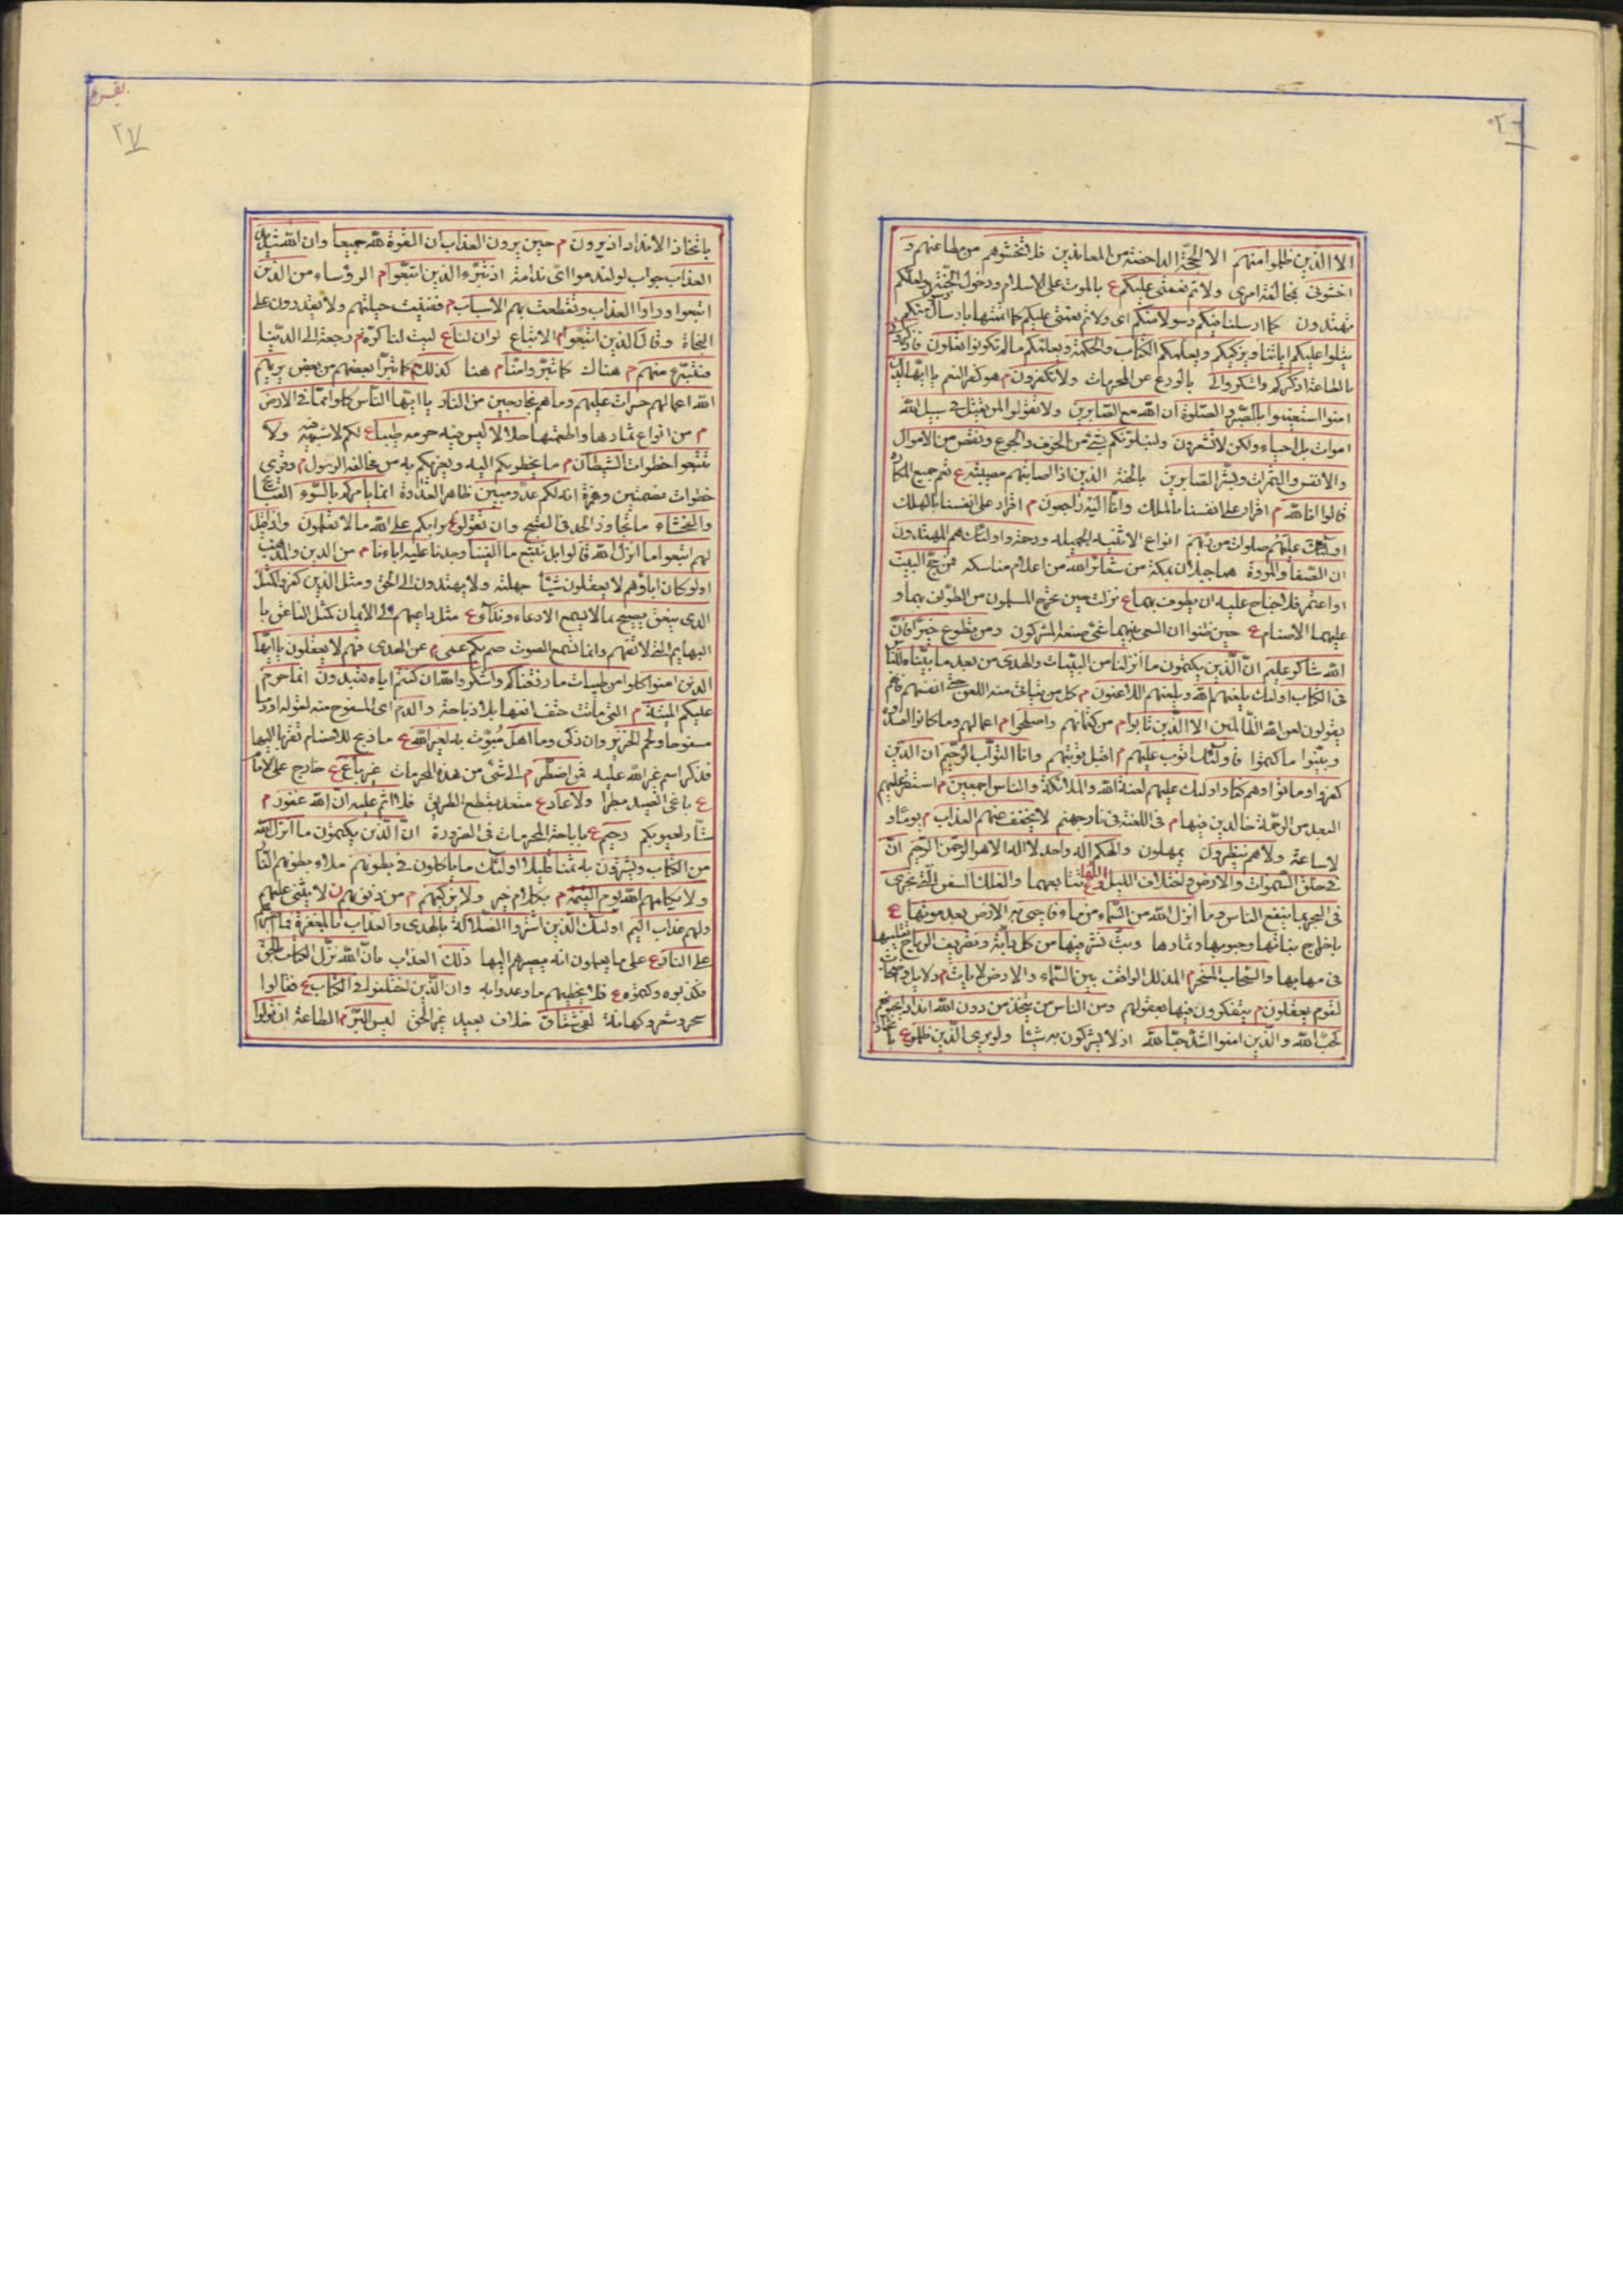 ٢٦
الا الذين ظلموا منهم الا الحجة الداحضة من المعاندين فلا تخشوهم من مطاعنهم و
اخشونى بمخالفة امرى ولاتم نعمتى عليكم ع بالموت على الاسلام ودخول الجنة ولعلكم
تهتدون كما ارسلنا فيكم رسولا منكم اى ولاتم نعمتى عليكم كما اتممتها بارسال منكم
يتلوا عليكم اياتنا ويزكيكم ويعلمكم الكتاب والحكمة ويعلمكم مالم تكونوا تعلمون فاذكرونى
بالطاعة اذكركم واشكروا لى بالورع عن المحرمات ولا تكفرون م هو كفر النعم يا ايها الذين
امنوا استعينوا بالصبر والصلوة ان الله مع الصابرين ولا تقولوا لمن يقتل فى سبيل الله
اموات بل احياء ولكن لا تشعرون ولنبلونكم بشئ من الخوف والجوع ونقص من الاموال
والانفس والثمرات وبشر الصابرين بالجنة الذين اذا اصابتهم مصيبة ع تعم جميع المكاره
قالوا انا لله م اقرار على انفسنا بالملك وانا اليه راجعون م اقرار على انفسنا بالهلك
اولئك عليهم صلوات من ربهم انواع الاثنية الجميلة ورحمة واولئك هم المهتدون
ان الصفا والمروة هما جبلان بمكة من شعائر الله من اعلام مناسكه فمن حج البيت
او اعتمر فلا جناح عليه ان يطوف بهما ع نزلت حين تحرج المسلمون من الطواف بهما و
عليهما الاصنام ع حين ظنوا ان السعى بينهما شئ صنعه المشركون ومن تطوع خيرا فان
الله شاكر عليم ان الذين يكتمون ما انزلنا من البينات والهدى من بعد ما بيناه للناس
فى الكتاب اولئك يلعنهم الله ويلعنهم اللاعنون م كل من يتاتى منه اللعن حتى انفسهم فانهم
يقولون لعن الله الظالمين الا الذين تابوا م من كتمانهم واصلحوا م اعمالهم وما كانوا افسدوه
وبينوا ما كتموا فاولئك اتوب عليهم م اقبل توبتهم وانا التواب الرحيم ان الذين
كفروا وماتوا وهم كفار اولئك عليهم لعنة الله والملائكة والناس اجمعين م استقر عليهم
البعد من الرحمة خالدين فيها م فى اللعنة فى نار جهنم لا يخفف عنهم العذاب م يوما و
لا ساعة ولا هم ينظرون يمهلون والهكم اله واحد لا اله الا هو الرحمن الرحيم ان
فى خلق السموات والارض واختلاف الليل والنهار ع تتابعهما والفلك السفن التى تجرى
فى البحر بما ينفع الناس وما انزل الله من السماء من ماء فاحيى به الارض بعد موتها ع
باخراج نباتها وحبوبها وثمارها وبث نشر فيها من كل دابة وتصريف الرياح تقليبها
فى مهابها والسحاب المسخر م المذلل الواقف بين السماء والارض لايات م دلايل واضحات
لقوم يعقلون م يتفكرون فيها بعقولهم ومن الناس من يتخذ من دون الله اندادا يحبونهم
كحب الله والذين امنوا اشد حبا لله اذ لا يشركون به شيئا ولو يرى الذين ظلموا ع باتخاذ
بقره
٢٧
باتخاذ الانداد اذ يرون م حين يرون العذاب ان القوة لله جميعا وان الله شديد
العذاب جواب لو لندموا اى ندامة اذ تبرء الذين اتبعوا م الرؤساء من الذين
اتبعوا وراوا العذاب وتقطعت بهم الاسباب م ففنيت حيلتهم ولا يقدرون على
النجاة وقال الذين اتبعوا م الاتباع لو ان لنا ع ليت لنا كرة م رجعة الى الدنيا
فنتبرء منهم م هناك كما تبروا منا م هنا كذلك م كما تبرأ بعضهم من بعض يريهم
الله اعمالهم حسرات عليهم وما هم بخارجين من النار يا ايها الناس كلوا مما فى الارض
م من انواع ثمارها واطعمتها حلالا ليس فيه حرمه طيبا ع لكم لا شبهة فيه ولا
تتبعوا خطوات الشيطان م ما يخطو بكم اليه ويغريكم به من مخالفة الرسول م وقرى
خطوات بضمتين وهمزة انه لكم عدو مبين ظاهر العداوة انما يامركم بالسوء
والفحشاء ما تجاوز الحد فى القبح وان تقولوا على الله ما لا تعلمون واذا قيل
لهم اتبعوا ما انزل الله قالوا بل نتبع ما الفينا وجدنا عليه اباءنا م من الدين والمذهب
اولو كان اباؤهم لا يعقلون شيئا جهلة ولا يهتدون الى الحق ومثل الذين كفروا كمثل
الذى ينعق يصيح بما لا يسمع الا دعاء ونداء ع مثل داعيهم الى الايمان كمثل الناعق با
البهايم التى لا تفهم وانما تسمع الصوت صم بكم عمى م عن الهدى فهم لا يعقلون يا ايها
الذين امنوا كلوا من طيبات ما رزقناكم واشكروا لله ان كنتم اياه تعبدون انما حرم
عليكم الميتة م التى ماتت حتف انفها بلا ذباحة والدم اى المسفوح منه لقوله او دما
مسفوحا ولحم الخنزير وان ذكى وما اهل صوت به لغير الله ع ما ذبح للاصنام تقربا اليها
فذكر اسم غير الله عليه فمن اضطر م الى شئ من هذه المحرمات غير باغ ع خارج على الامام
ع باغى الصيد بطرا ولا عاد ع متعد بقطع الطريق فلا اثم عليه ان الله غفور م
ستار لعيوبكم رحيم ع باباحة المحرمات فى الضرورة ان الذين يكتمون ما انزل الله
من الكتاب ويشترون به ثمنا قليلا اولئك ما ياكلون فى بطونهم ملاء بطونهم الا النار
ولا يكلمهم الله يوم القيمة م بكلام خير ولا يزكيهم م من ذنوبهم لا يثنى عليهم
ولهم عذاب اليم اولئك الذين اشتروا الضلالة بالهدى والعذاب بالمغفرة فما اصبرهم
على النار ع على ما يعملون انه يصيرهم اليها ذلك العذاب بان الله نزل الكتاب بالحق
فكذبوه وكتموه ع فلا يخطيهم ما وعدوا به وان الذين اختلفوا فى الكتاب ع فقالوا
سحر وشعر وكهانة لفى شقاق خلاف بعيد عن الحق ليس البر م الطاعة ان تولوا